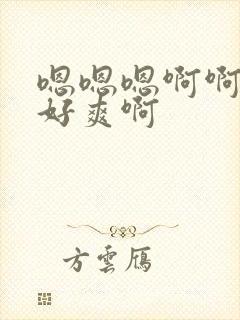 嗯嗯嗯啊啊
好爽啊
方雲鴈